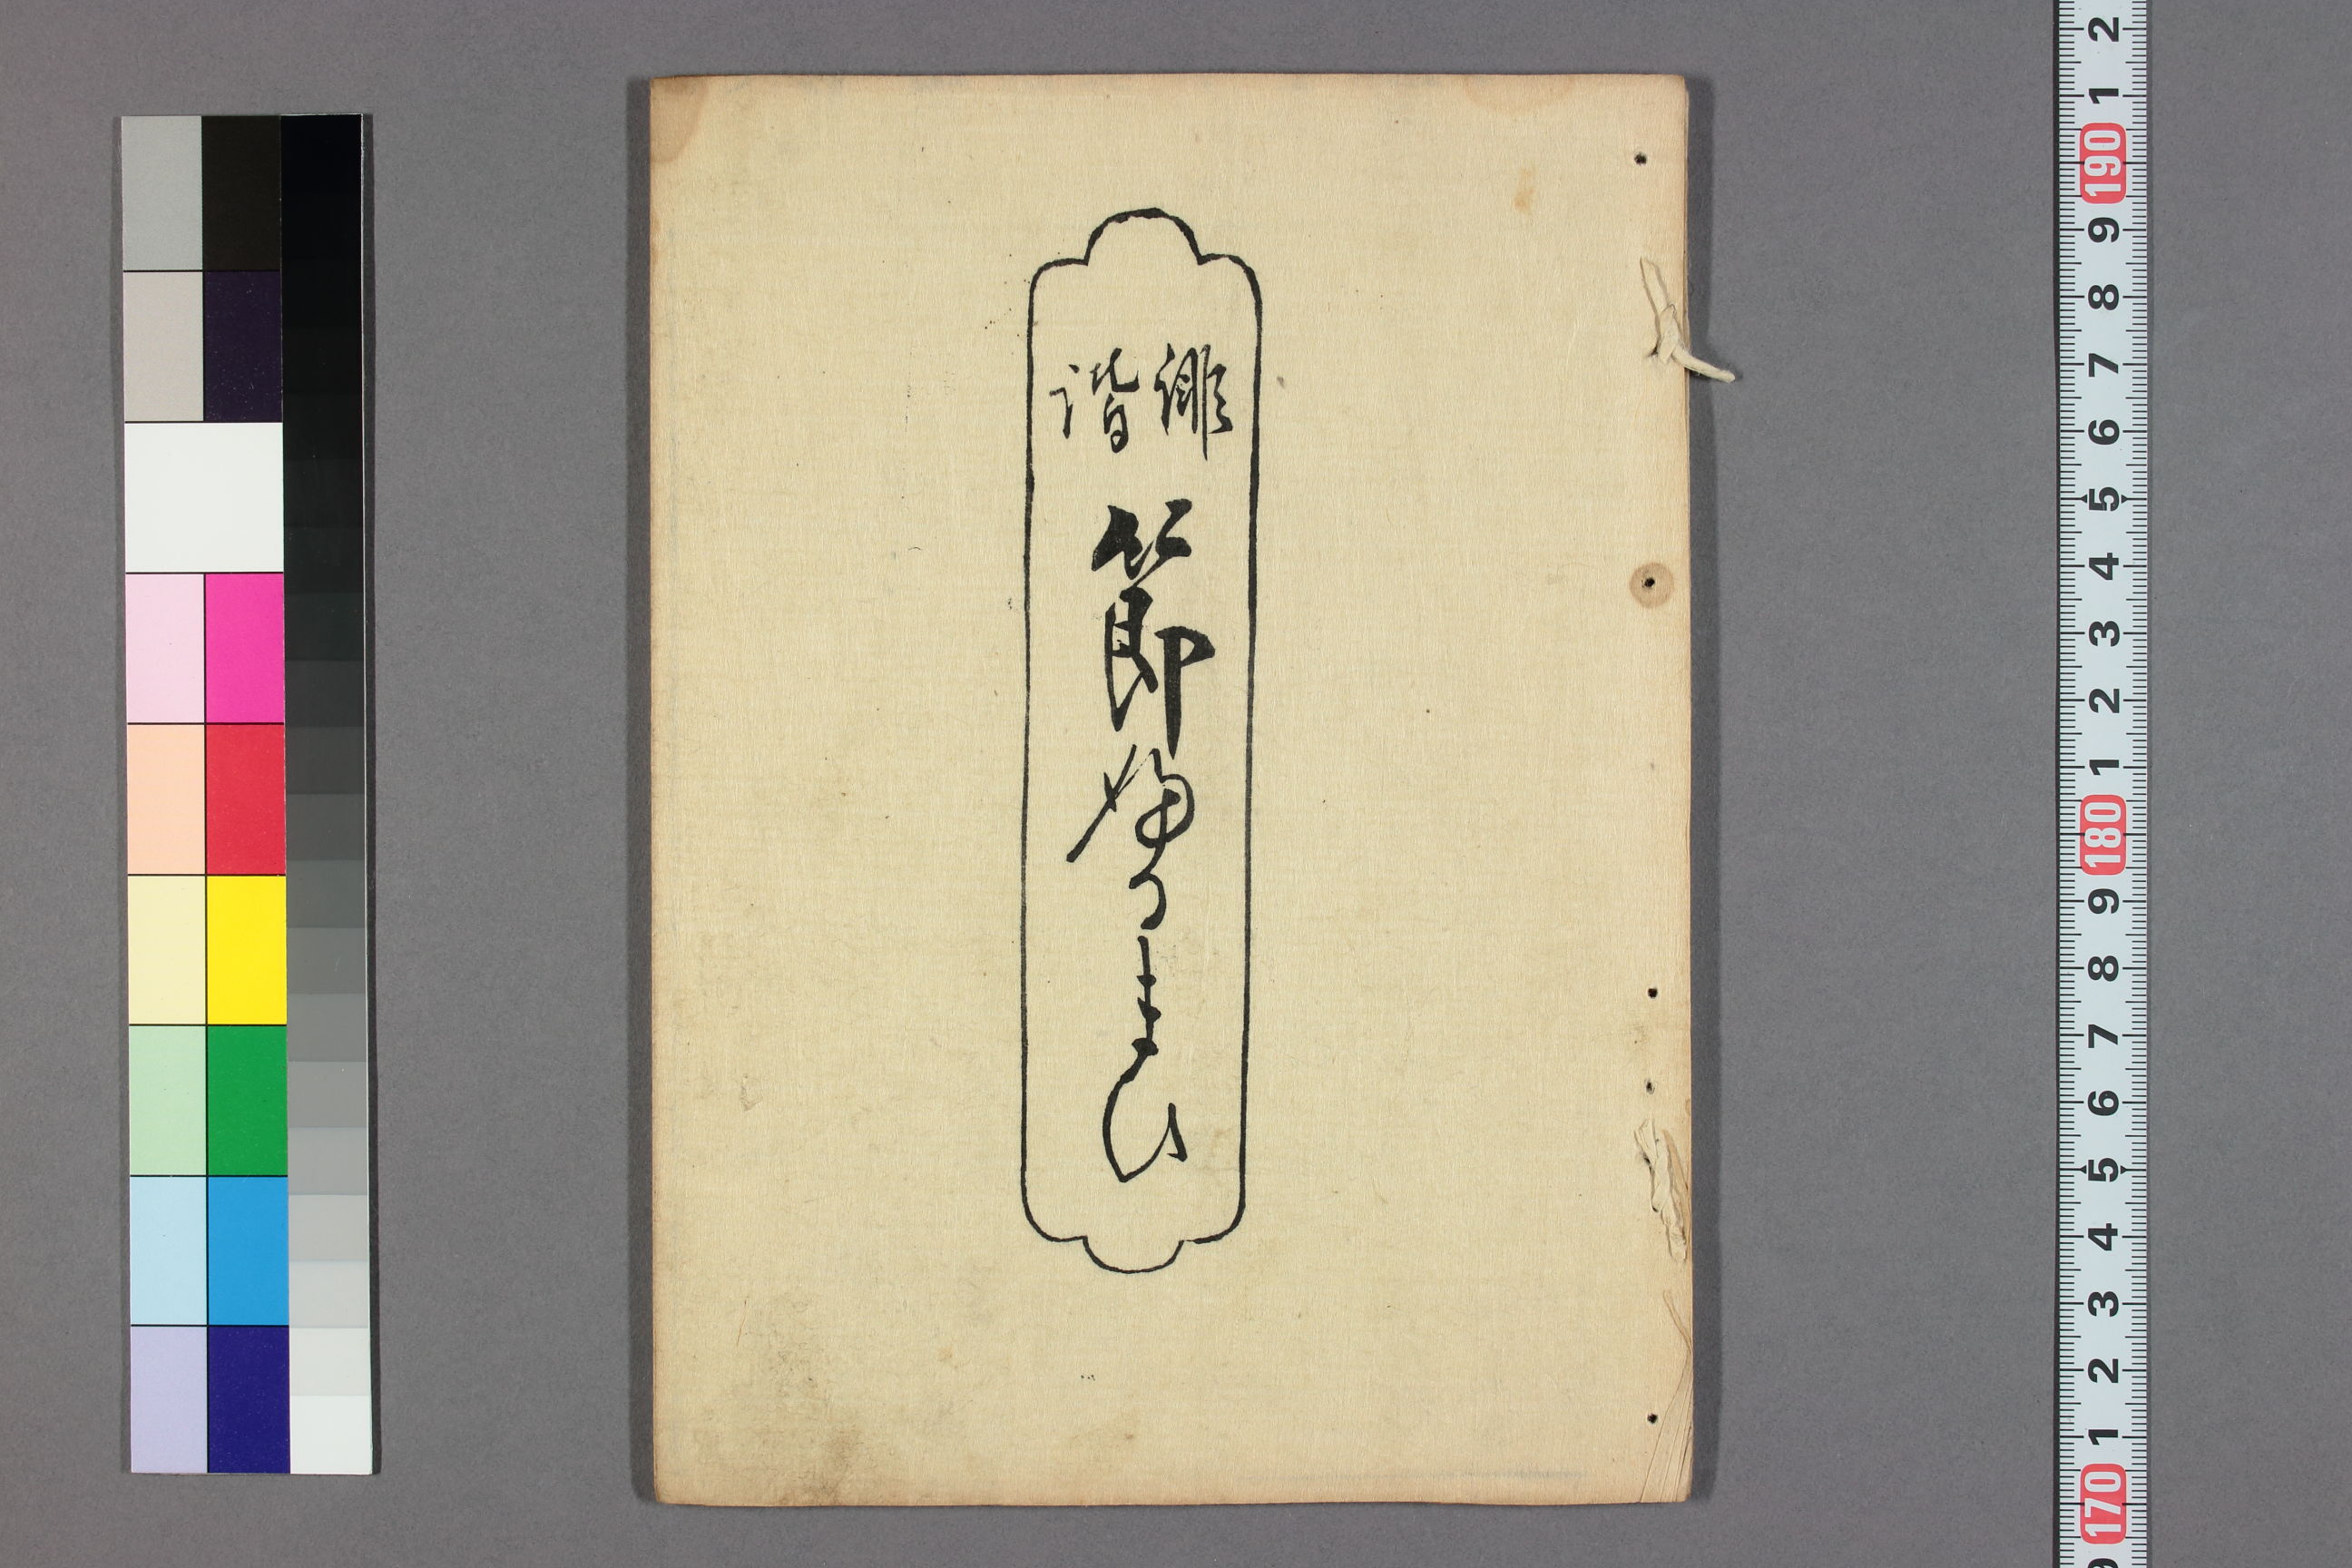 俳諧
節婦るまひ
2
1
190
9
8
7
6
5
4
3
2
1
180
9
8
7
6
5
4
3
2
1
170